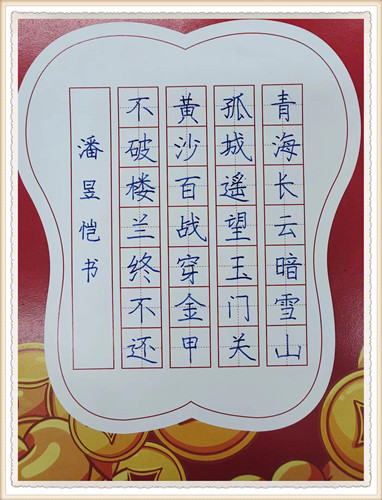 青海长云暗雪山
孤城遥望玉门关
黄沙百战穿金甲
不破楼兰终不还
潘昱恺书